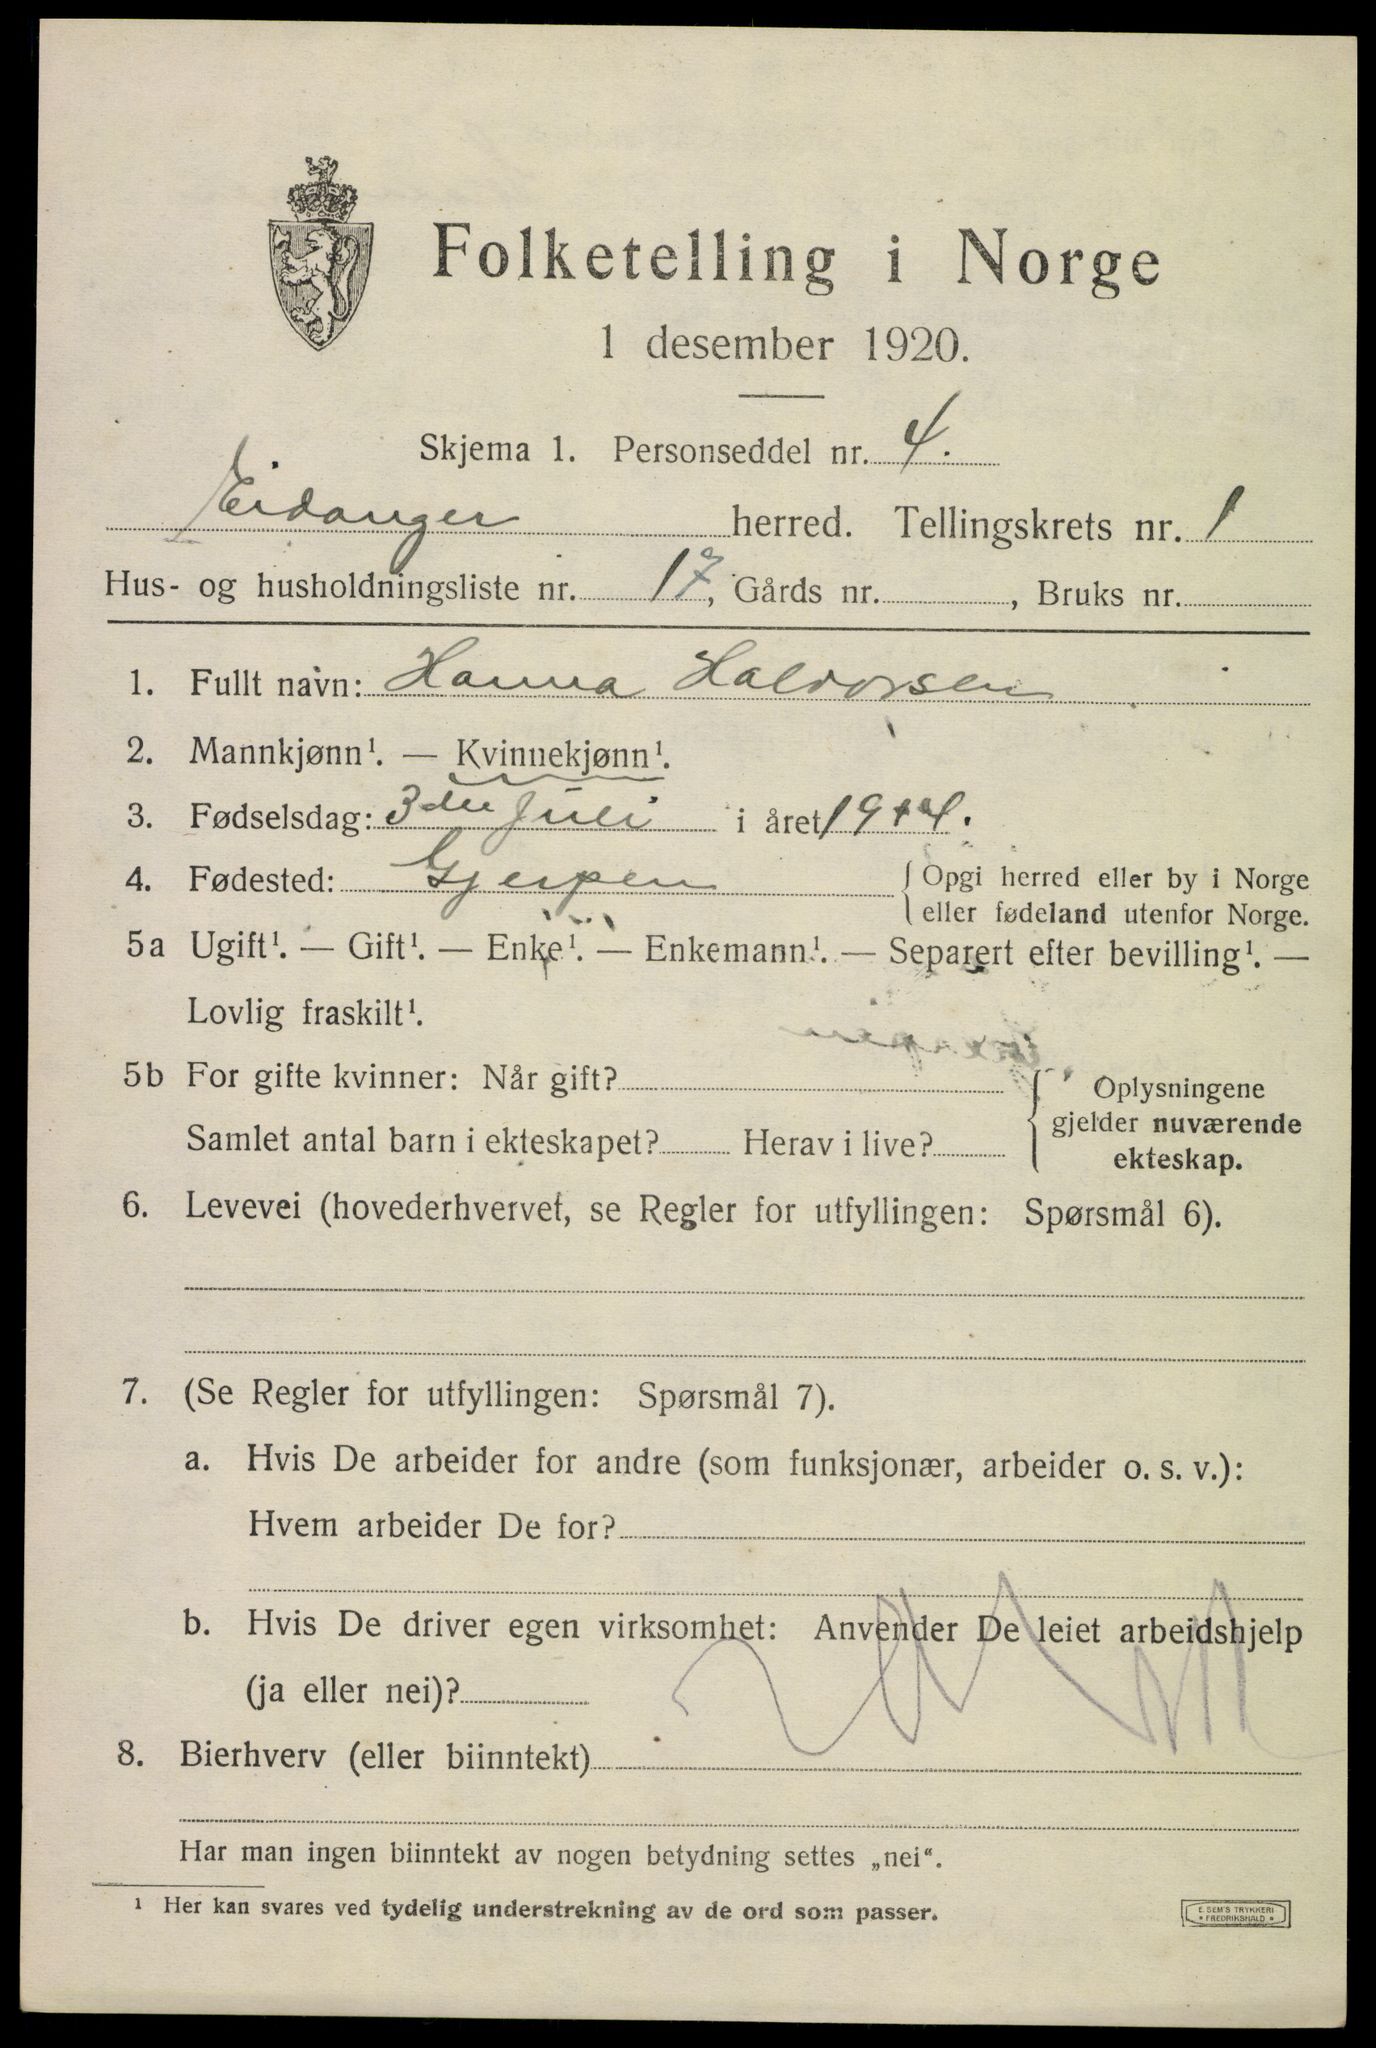 Folketelling i Norge
1 desember 1920.
Skjema 1. Personseddel nr. 4.
Eidanger herred. Tellingskrets nr. 1
Hus- og husholdningsliste nr. 17, Gårds nr. , Bruks nr.
1. Fullt navn: Hanna Halvorsen
2. Mannkjønn¹. — Kvinnekjønn¹.
3. Fødselsdag: 3die Juli i året
4. Fødested: Gjerpen { Opgi herred eller by i Norge
eller fødeland utenfor Norge.
5a Ugift¹. — Gift¹. — Enke¹. — Enkemann¹. — Separert efter bevilling¹. —
Lovlig fraskilt¹.
5b For gifte kvinner: Når gift? { Oplysningene
gjelder nuværende
Samlet antal barn i ekteskapet? Herav i live?
ekteskap.
6. Levevei (hovederhvervet, se Regler for utfyllingen: Spørsmål 6).
7. (Se Regler for utfyllingen: Spørsmål 7).
a. Hvis De arbeider for andre (som funksjonær, arbeider o. s. v.):
Hvem arbeider De for?
b. Hvis De driver egen virksomhet: Anvender De leiet arbeidshjelp
(ja eller nei)?
8. Bierhverv (eller biinntekt)
Har man ingen biinntekt av nogen betydning settes „nei“.
¹ Her kan svares ved tydelig understrekning av de ord som passer.
E. SEM'S TRYKKERI
* FREDRIKSHALD *